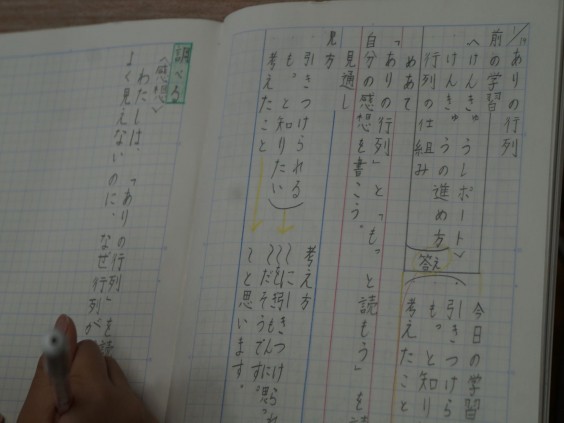 ありの行列
前の学習
〈けんきゅうレポート〉
けんきゅうの進め方
行列の仕組み
答え
今日の学習
引きつけら
もっと知り
考えたこと
めあて
「ありの行列」と「もっと読もう」を
自分の感想を書こう。
見通し
見方
引きつけられる
もっと知りたい
考えたこと
考え方
〜に
〜引きつけられ
〜だそうです。
〜と思います。
調べる
〈感想〉
わたしは、「ありの行列」を読
よく見えないのに、なぜ行列が